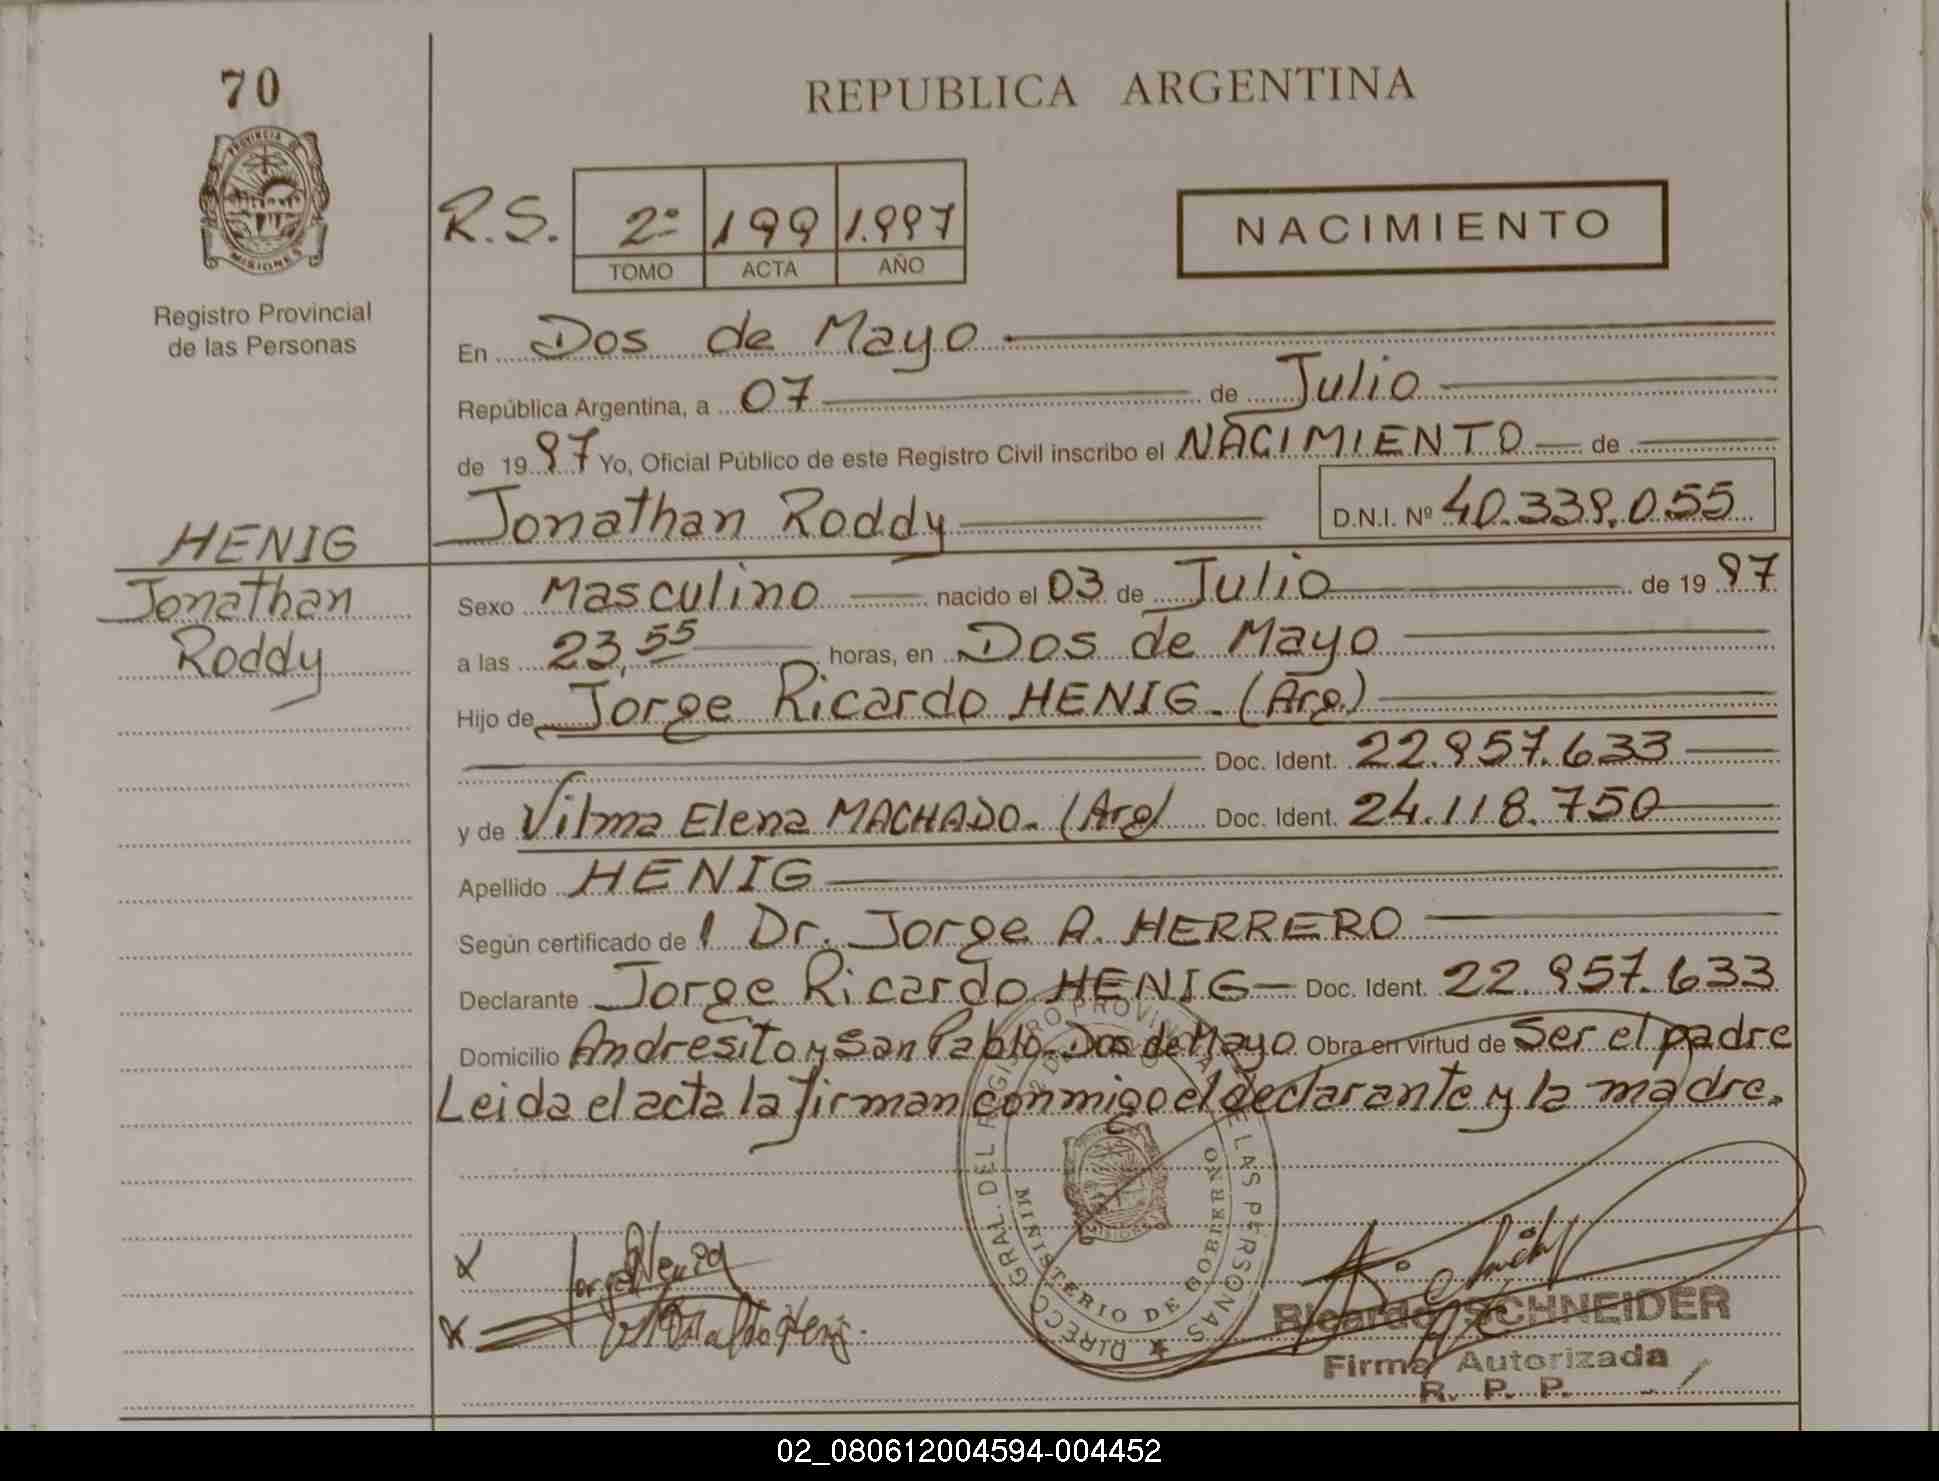 70
REPUBLICA ARGENTINA
PROVINCIA DE
MISIONES
Registro Provincial
de las Personas
R.S. 2º 199 1.997
TOMO ACTA AÑO
NACIMIENTO
En Dos de Mayo
República Argentina, a 07 de Julio
de 1997 Yo, Oficial Público de este Registro Civil inscribo el NACIMIENTO de
Jonathan Roddy D.N.I. Nº 40.339.055
HENIG
Jonathan
Roddy
Sexo Masculino nacido el 03 de Julio de 1997
a las 23,55 horas, en Dos de Mayo
Hijo de Jorge Ricardo HENIG. (Arg.)
Doc. Ident. 22.957.633
y de Vilma Elena MACHADO. (Arg) Doc. Ident. 24.118.750
Apellido HENIG
Según certificado de 1 Dr. Jorge A. HERRERO
Declarante Jorge Ricardo HENIG Doc. Ident. 22.957.633
Domicilio Andresito y San Pablo. Dos de Mayo Obra en virtud de Ser el padre
Leida el acta la firman conmigo el declarante y la madre.
DIRECC. GRAL. DEL REGISTRO PROVINCIAL DE LAS PERSONAS
MINISTERIO DE GOBIERNO
MISIONES
Ricardo SCHNEIDER
Firma Autorizada
R. P. P.
02_080612004594-004452